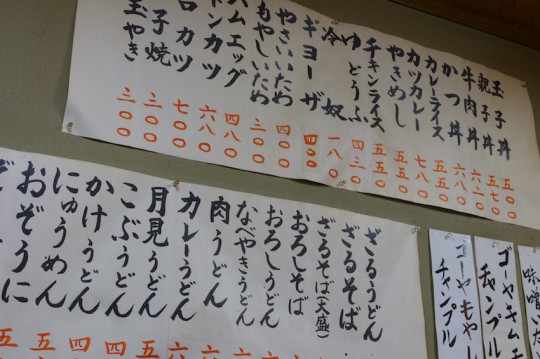 玉子丼 五〇〇
親子丼 五五〇
牛肉丼
かつ丼 六八〇
カレーライス 五五〇
カツカレー 七八〇
やきめし 五五〇
チキンライス 五五〇
ゆどうふ 四三〇
冷奴 一八〇
ギョーザ 四〇〇
やさいいため 四〇〇
もやしいため 三〇〇
ハムエッグ 四八〇
トンカツ 六八〇
口カツ 七〇〇
玉子焼 三三〇
玉やき 三〇〇
ざるうどん
ざるそば
ざるそば(大盛)
おろしそば
おろしうどん
なべやきうどん
肉うどん
カレーうどん
月見うどん
こぶうどん
かけうどん
にゅうめん
おぞうに
味噌
ゴーヤキムチ
チャンプル
ゴーヤもや
チャンプル